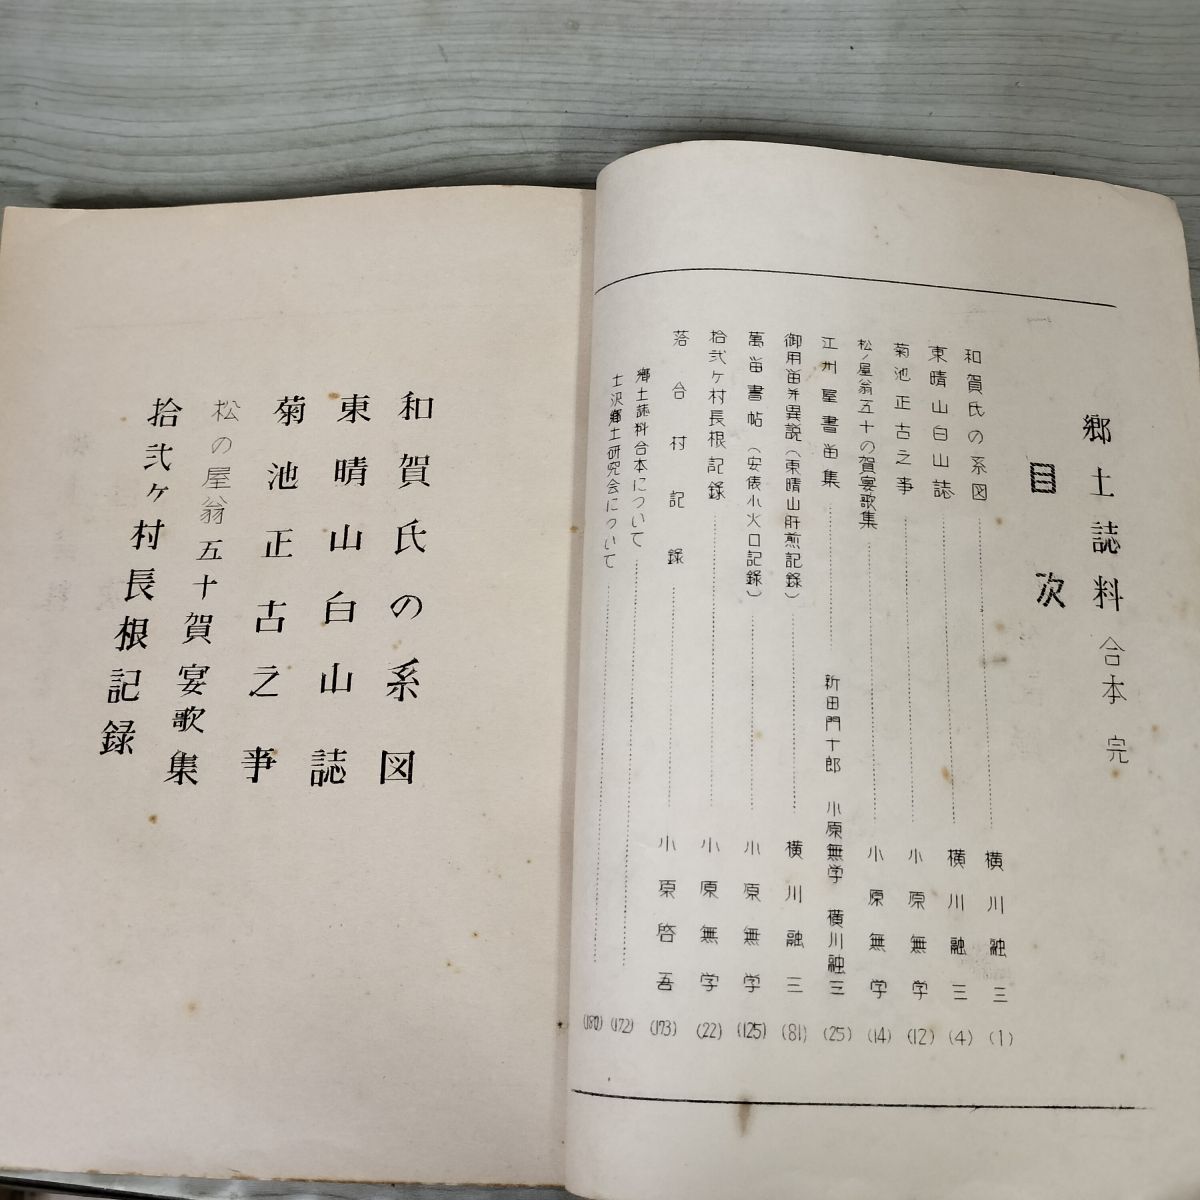 郷土誌料 合本 完
目次
和賀氏の系図 横川融三 (1)
東晴山白山誌 横川融三 (4)
菊池正古之事 小原無学 (12)
松ノ屋翁五十の賀宴歌集 小原無学 (14)
江州屋書留集 新田門十郎 小原無学 横川融三 (25)
御用留并異説(東晴山肝煎記録) 横川融三 (81)
萬留書帖(安俵小火口記録) 小原無学 (125)
拾弐ヶ村長根記録 小原無学 (22)
落合村記録 小原啓吾 (173)
郷土誌料合本について (172)
土沢郷土研究会について
和賀氏の系図
東晴山白山誌
菊池正古之事
松の屋翁五十賀宴歌集
拾弐ヶ村長根記録